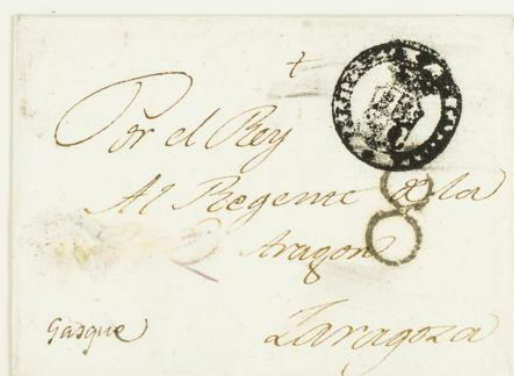 Por el Rey
Al Regente de la
Aragon
8
Gasque
Zaragoza